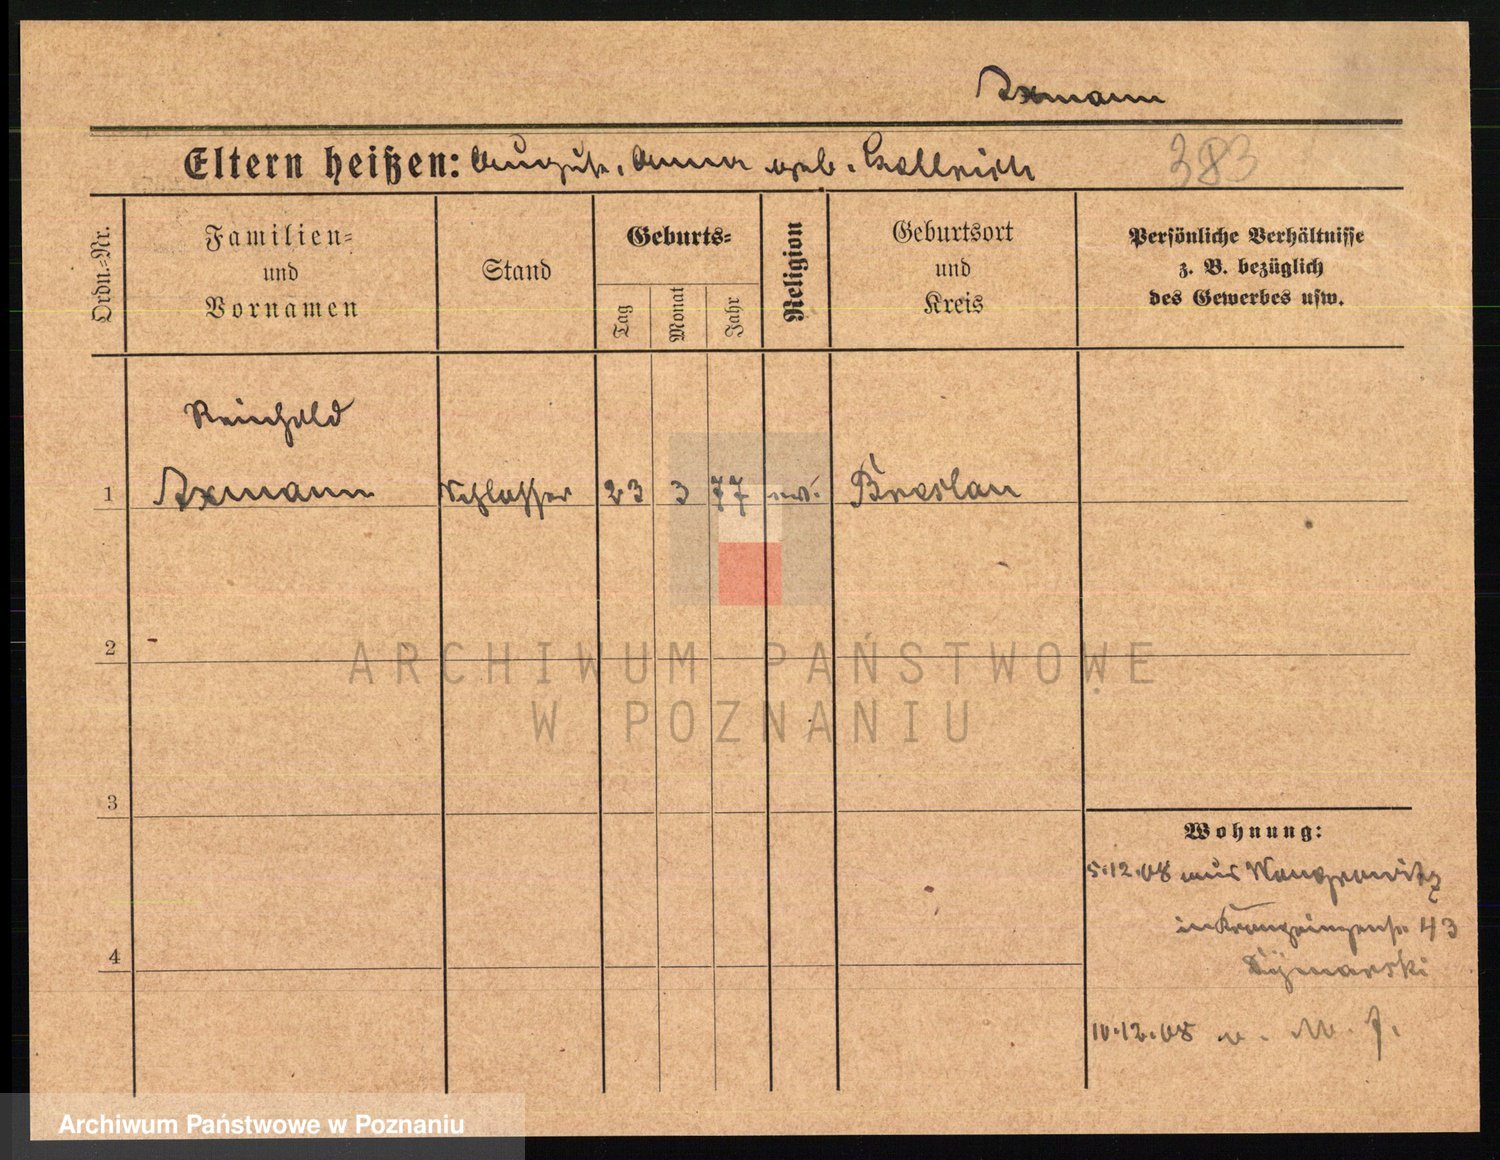 Axmann
Eltern heißen: August, Anna geb. 383
Ordn.=Nr.
Familien=
und
Vornamen
Stand
Geburts=
Tag
Monat
Jahr
Religion
Geburtsort
und
Kreis
Persönliche Verhältnisse
z. B. bezüglich
des Gewerbes usw.
Reinhold
1 Axmann Schlosser 23 3 77 ev. Breslau
2
ARCHIWUM PAŃSTWOWE
W POZNANIU
3
Wohnung:
5.12.08 aus Wongrowitz
in 43
4
10.12.08 v.
Archiwum Państwowe w Poznaniu